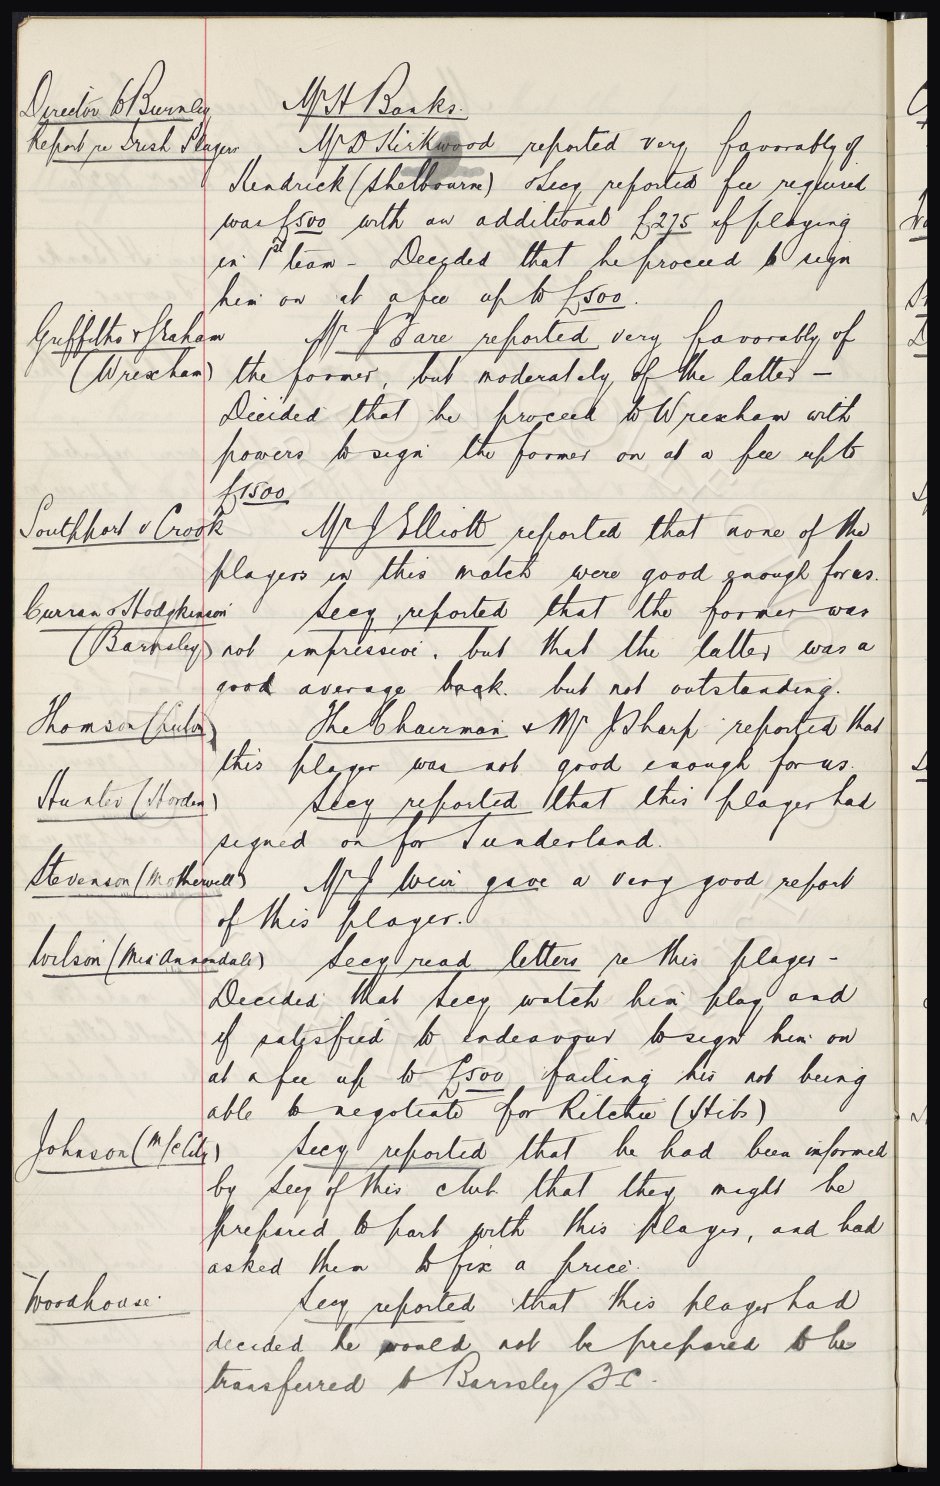 Director to Burnley Mr H Banks.
Report re Irish Players Mr D Kirkwood reported very favorably of
Kendrick (Shelbourne) & Secy reported fee required
was £500 with an additional £275 if playing
in 1st team - Decided that he proceed to sign
him on at a fee up to £500.
Griffiths & Graham Mr J Sare reported very favorably of
(Wrexham) the former, but moderately of the latter -
Decided that he proceed to Wrexham with
powers to sign the former on at a fee up to
£1500
Southport v Crook Mr J Elliott reported that none of the
players in this match were good enough for us.
Curran & Hodgkinson Secy reported that the former was
(Barnsley) not impressive, but that the latter was a
good average back. but not outstanding.
Thomson (Luton) The Chairman & Mr J Sharp reported that
this player was not good enough for us.
Hunter (Horden) Secy reported that this player had
signed on for Sunderland.
Stevenson (Motherwell) Mr J Weir gave a very good report
of this player.
Wilson (Mid Annandale) Secy read letters re this player -
Decided that Secy watch him play and
if satisfied to endeavour to sign him on
at a fee up to £500 failing his not being
able to negotiate for Ritchie (Hibs)
Johnson (M/c City) Secy reported that he had been informed
by Secy of this club that they might be
prepared to part with this player, and had
asked them to fix a price.
Woodhouse Secy reported that this player had
decided he would not be prepared to be
transferred to Barnsley F.C.